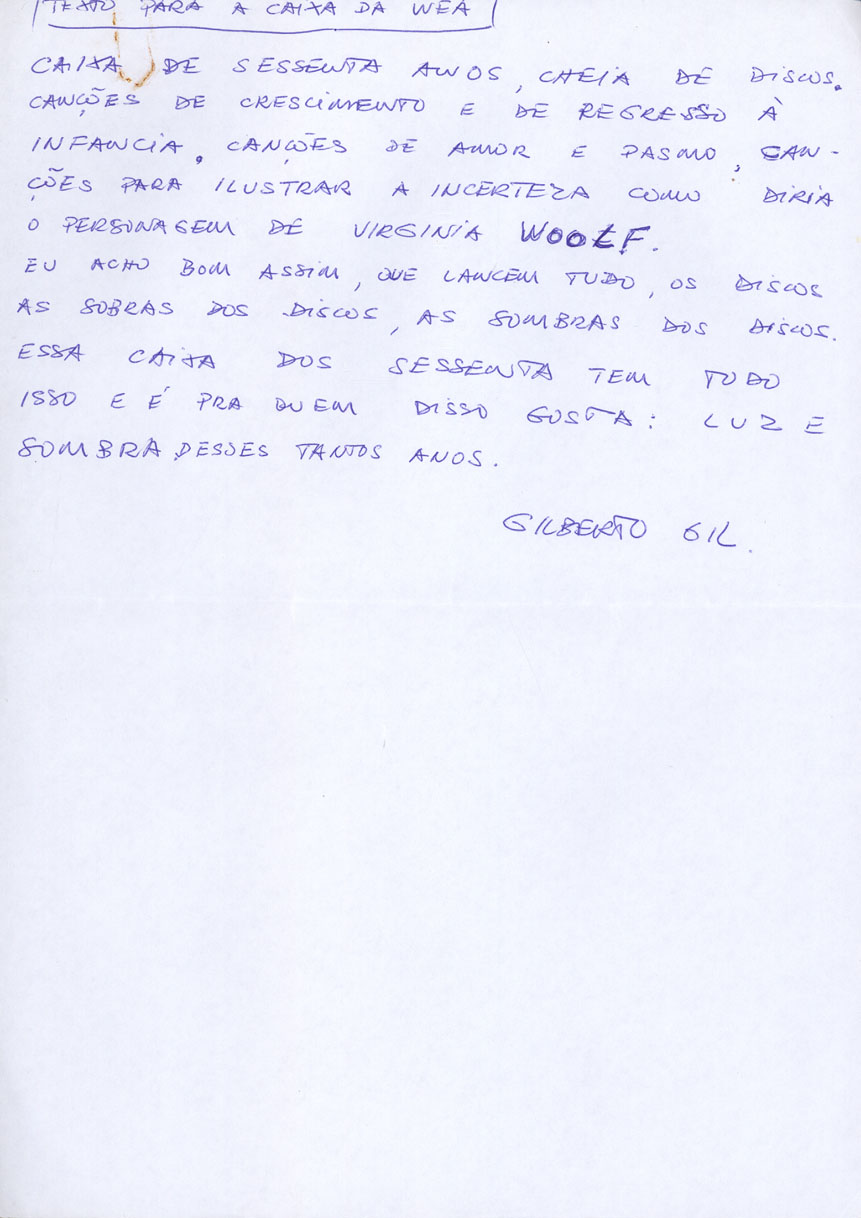 TEXTO PARA A CAIXA DA WEA
CAIXA DE SESSENTA ANOS, CHEIA DE DISCOS.
CANÇÕES DE CRESCIMENTO E DE REGRESSO À
INFANCIA, CANÇÕES DE AMOR E PASMO, CAN-
ÇÕES PARA ILUSTRAR A INCERTEZA COMO DIRIA
O PERSONAGEM DE VIRGINIA WOOLF.
EU ACHO BOM ASSIM, QUE LANCEM TUDO, OS DISCOS
AS SOBRAS DOS DISCOS, AS SOMBRAS DOS DISCOS.
ESSA CAIXA DOS SESSENTA TEM TUDO
ISSO E É PRA QUEM DISSO GOSTA: LUZ E
SOMBRA DESSES TANTOS ANOS.
GILBERTO GIL.